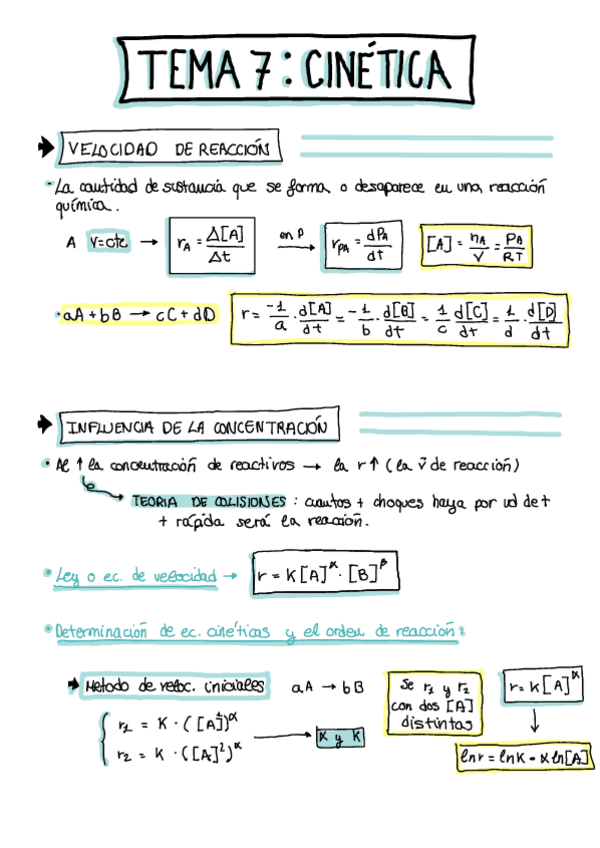 TEMA 7: CINÉTICA
VELOCIDAD DE REACCIÓN
La cantidad de sustancia que se forma o desaparece en una reacción
química.
A V=cte → r_A = Δ[A]/Δt en P → r_PA = dP_A/dt [A] = n_A/V = P_A/RT
aA + bB → cC + dD r = -1/a · d[A]/dt = -1/b · d[B]/dt = 1/c d[C]/dt = 1/d · d[D]/dt
INFLUENCIA DE LA CONCENTRACIÓN
Al ↑ la concentración de reactivos → la r↑ (la v de reacción)
TEORIA DE COLISIONES: cuantos + choques haya por ud de t
+ rápida será la reacción.
Ley o ec. de velocidad → r = K[A]^α · [B]^β
Determinación de ec. cinéticas y el orden de reacción:
Metodo de veloc. iniciales aA → bB
Se r₁ y r₂
con dos [A]
distintas
r = K[A]^α
r₁ = K · ([A]¹)^α
r₂ = K · ([A]²)^α
α y K
ln r = ln K - α ln[A]